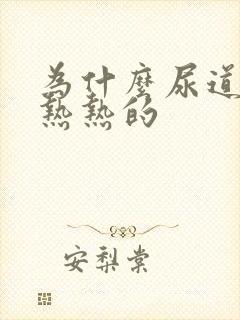 为什麼尿道
熱熱的
安梨棠